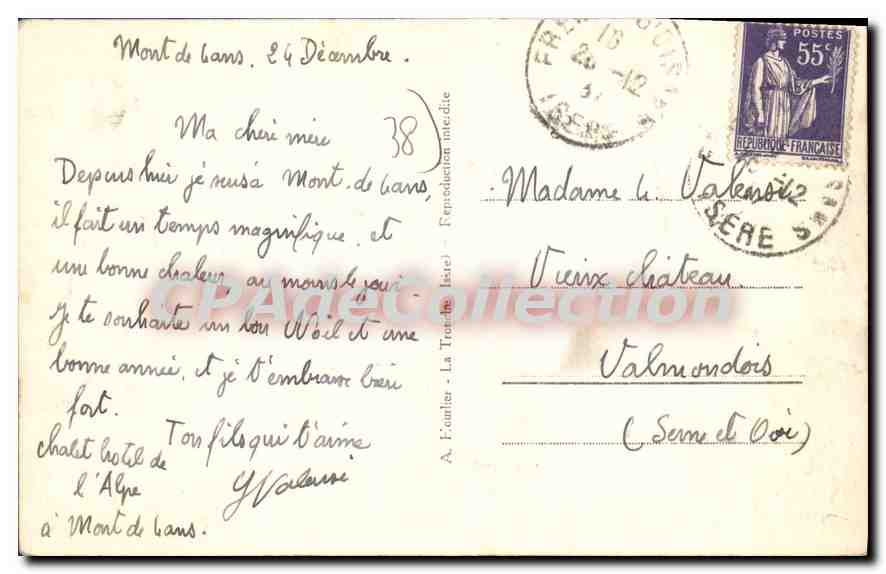 Mont de Lans. 24 Décembre.
Ma chéri mère
38
Depuis hier je suis à Mont. de Lans,
il fait un temps magnifique, et
une bonne chaleur, au moins le jour.
Je te souhaite un bon Noël et une
bonne année, et je t'embrasse bien
fort.
Ton fils qui t'aime
chalet hotel de
l'Alpe
à Mont de Lans.
A. Hourlier - La Tronche (Isère) - Reproduction interdite
POSTES
55c
REPUBLIQUE-FRANCAISE
18
-12
ISERE
12
SERE
Madame
Vieux château.
Valmondois
(Seine et Oise)
CPAdeCollection